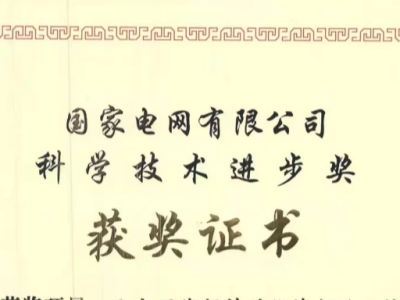 国家电网有限公司
科学技术进步奖
获奖证书